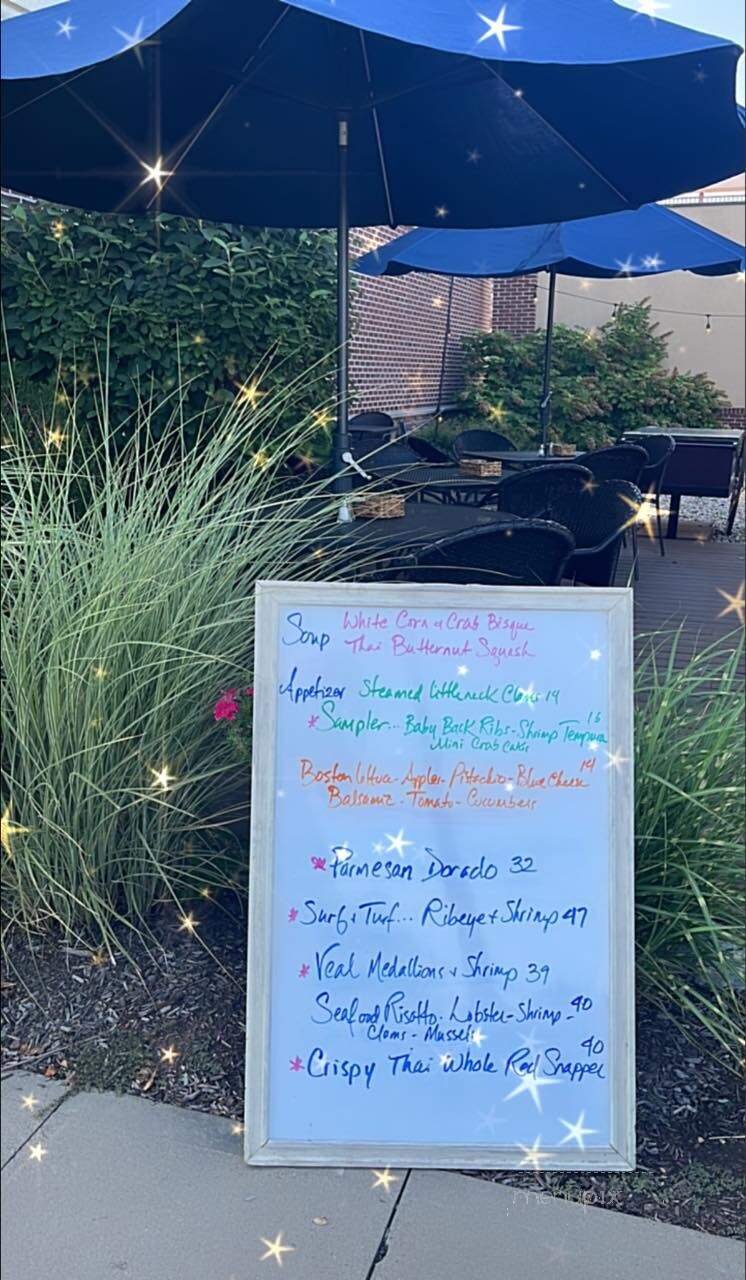 Soup White Corn & Crab Bisque
Thai Butternut Squash
Appetizer Steamed Littleneck Clams 14
* Sampler... Baby Back Ribs - Shrimp Tempura 16
Mini Crab Cakes
Boston lettuce - Apples - Pistachio - Blue Cheese 14
Balsamic - Tomato - Cucumbers
* Parmesan Dorado 32
* Surf & Turf... Ribeye & Shrimp 47
* Veal Medallions & Shrimp 39
Seafood Risotto - Lobster - Shrimp - 40
Clams - Mussels
* Crispy Thai Whole Red Snapper 40
menupix